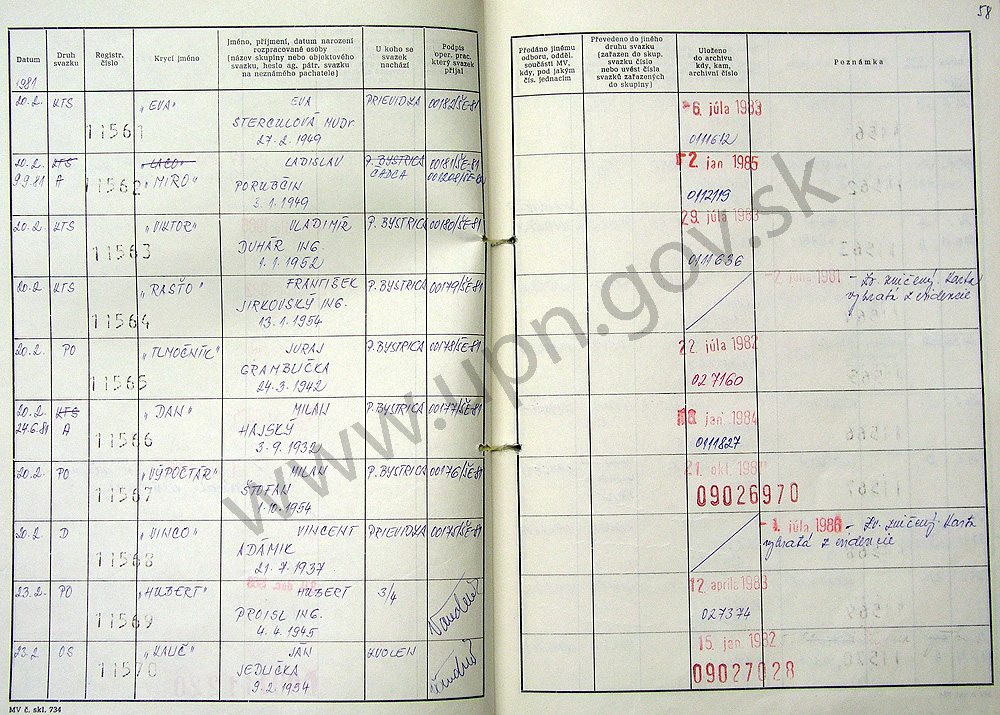 58
Datum
Druh svazku
Registr. číslo
Krycí jméno
Jméno, příjmení, datum narození rozpracované osoby (název skupiny nebo objektového svazku, heslo ag. pátr. svazku na neznámého pachatele)
U koho se svazek nachází
Podpis oper. prac. který svazek přijal
Předáno jinému odboru, odděl. součásti MV, kdy, pod jakým čís. jednacím
Převedeno do jiného druhu svazku (zařazen do skup. svazku číslo nebo uvést čísla svazků zařazených do skupiny)
Uloženo do archivu kdy, kam, archivní číslo
Poznámka
1981
20.2. KTS 11561 „EVA" EVA PRIEVIDZA 00182/ŠE-81 -6. júla 1983
STERCULOVÁ MUDr 0111612
27.2.1949
20.2. KTS „LACO" LADISLAV P. BYSTRICA 00181/ŠE-81 2. jan 1985
9.9.81 A 11562 „MIRO" PORUBČIN ČADCA 0112119
3.1.1949
20.2. KTS „VIKTOR" VLADIMÍR P. BYSTRICA 00180/ŠE-81 29. júla 1983
11563 DUHÁR ING. 0111636
1.1.1952
20.2. KTS „RASŤO" FRANTIŠEK P. BYSTRICA 00179/ŠE-81 1981 – Zv. zničený. Karta
11564 JIRKOVSKÝ ING. vybratá z evidencie
13.1.1954
20.2. PO „TLMOČNÍK" JURAJ P. BYSTRICA 00178/ŠE-81 22. júla 1982
11565 GRAMBLIČKA 027160
24.3.1942
20.2. KTS „DAN" MILAN P. BYSTRICA 00177/ŠE-81 jan 1984
24.6.81 A 11566 HAJSKÝ 0111827
3.9.1932
20.2. PO „VÝPOČTÁR" MILAN P. BYSTRICA 00176/ŠE-81 21. okt. 1981
11567 ŠTOFAN 09026970
1.10.1954
20.2. D „VINCO" VINCENT PRIEVIDZA 00175/ŠE-81 -1. júla 1986 – Zv. zničený. Karta
11568 ADAMIK vybratá z evidencie
21.7.1937
23.2. PO „HUBERT" HUBERT 3/4 12. apríla 1983
11569 PROISL ING. 027374
4.4.1945
23.2. OS „KAUČ" JÁN ZVOLEN 15. jan 1982
11570 JEDLIČKA 09027028
9.2.1954
MV č. skl. 734
www.upn.gov.sk